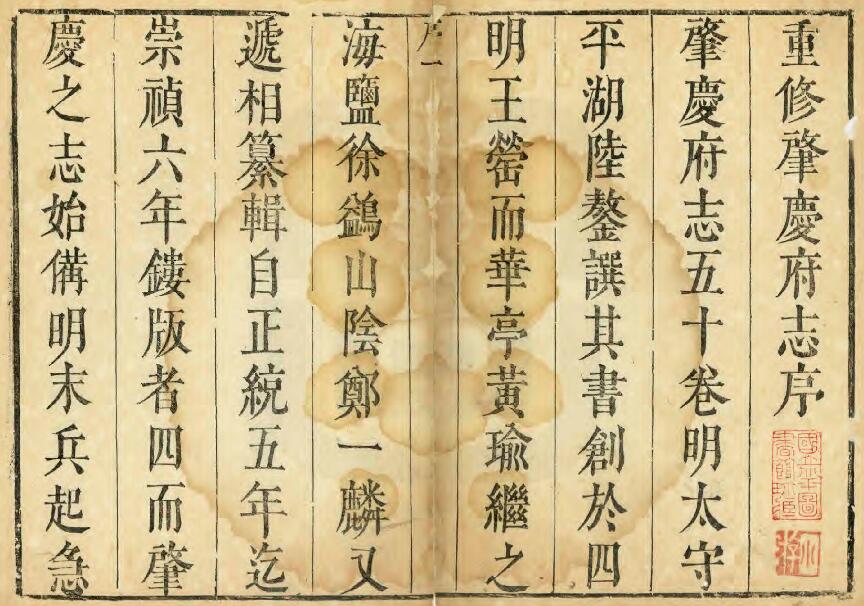 重修肇慶府志序
肇慶府志五十卷明太守
平湖陸鏊譔其書創於四
明王罃而華亭黃瑜繼之
序一
海鹽徐鷁山陰鄭一麟又
遞相纂輯自正統五年迄
崇禎六年鏤版者四而肇
慶之志始備明末兵起急